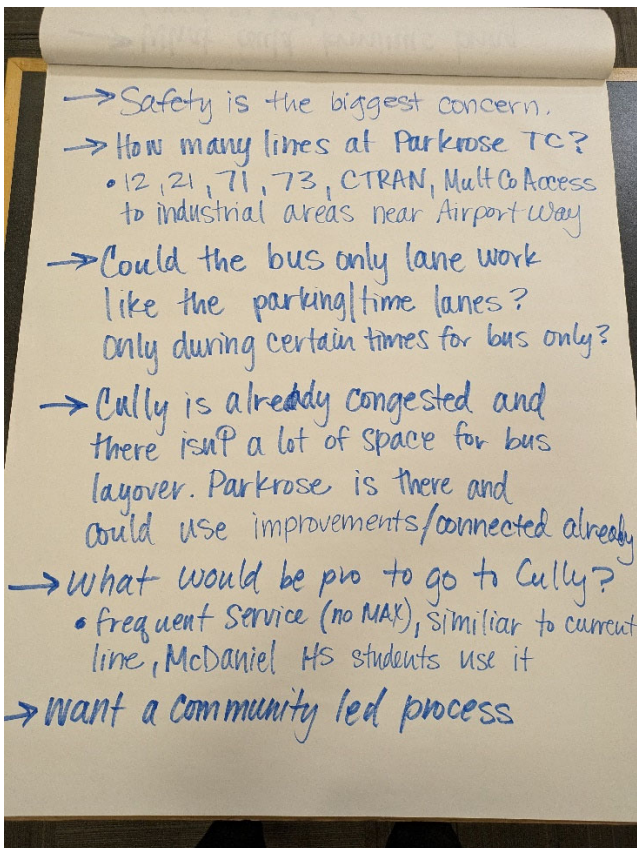 → Safety is the biggest concern.
→ How many lines at Parkrose TC?
• 12, 21, 71, 73, CTRAN, Mult Co Access
to industrial areas near Airport Way
→ Could the bus only lane work
like the parking/time lanes?
only during certain times for bus only?
→ Cully is already congested and
there isn't a lot of space for bus
layover. Parkrose is there and
could use improvements/connected already
→ What would be pro to go to Cully?
• frequent service (no MAX), similiar to current
line, McDaniel HS students use it
→ want a community led process